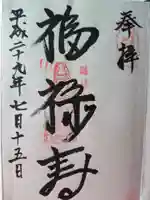 奉拝
福禄寿
平成二十九年七月十五日